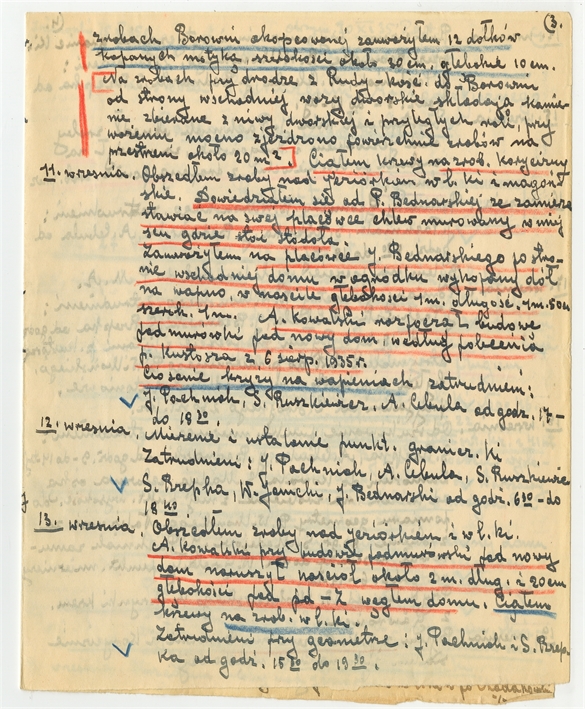 (3.
zrobach Borowni okopcowanej zauważyłem 12 dołków
kopanych motyką, szerokości około 30 cm, głębokie 10 cm.
Na zrobach przy drodze z Rudy-kość. do Borowni
od strony wschodniej wozy dworskie składają kamie-
nie zbierane z niwy dworskiej i przyległych roli, przy
wożeniu mocno zjeżdżono powierzchnię zrobów na
przestrzeni około 20 m². Ciąłem krzewy na zrob. Korycizny
11. września. Obszedłem zroby nad jeziorkiem w b. ki i magoń-
skie. Dowiedziałem się od P. Bednarskiej że zamierza
stawiać na swej placówce chlew murowany w miej
scu gdzie stoi stodoła.
Zauważyłem na placówce J. Bednarskiego po stro-
nie wschodniej domu w ogródku wykopany dół
na wapno w naściele głębokości 1m. długość. 1m. 50cm
szerok. 1m. A. Kowalski rozpoczął budowę
podmurówki pod nowy dom, według polecenia
p. Kustosza z 6 sierp. 1935 r.
Ciosanie krzyży na wapieniach, zatrudnieni:
J. Pachniak, S. Ruszkiewicz, A. Cebula od godz. 17-
do 18 30
12. września. Mierzenie i ustalanie punkt. granicz. ki
Zatrudnieni: J. Pachniak, A. Cebula, S. Ruszkiewicz
S. Rzepka, W. Janicki, J. Bednarski od godz. 6 30 - do
18 40
13. września. Obszedłem zroby nad jeziorkiem i w b. ki.
A. Kowalski przy budowie podmurówki pod nowy
dom naruszył naściół około 2 m. dług. i 20 cm
głębokości pod pd-Z węgłem domu. Ciąłem
krzewy na zrob. w b. ki.
Zatrudnieni przy geometrze: J. Pachniak i S. Rzep-
ka od godz. 15 30 do 19 30.